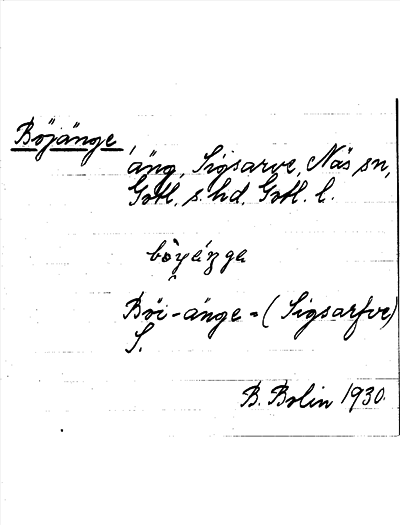 Böjänge,
äng, Sigsarve, Näs sn,
Gotl. s. hd, Gotl. l.
Böi-änge - (Sigsarfve)
S.
B. Bolin 1930.